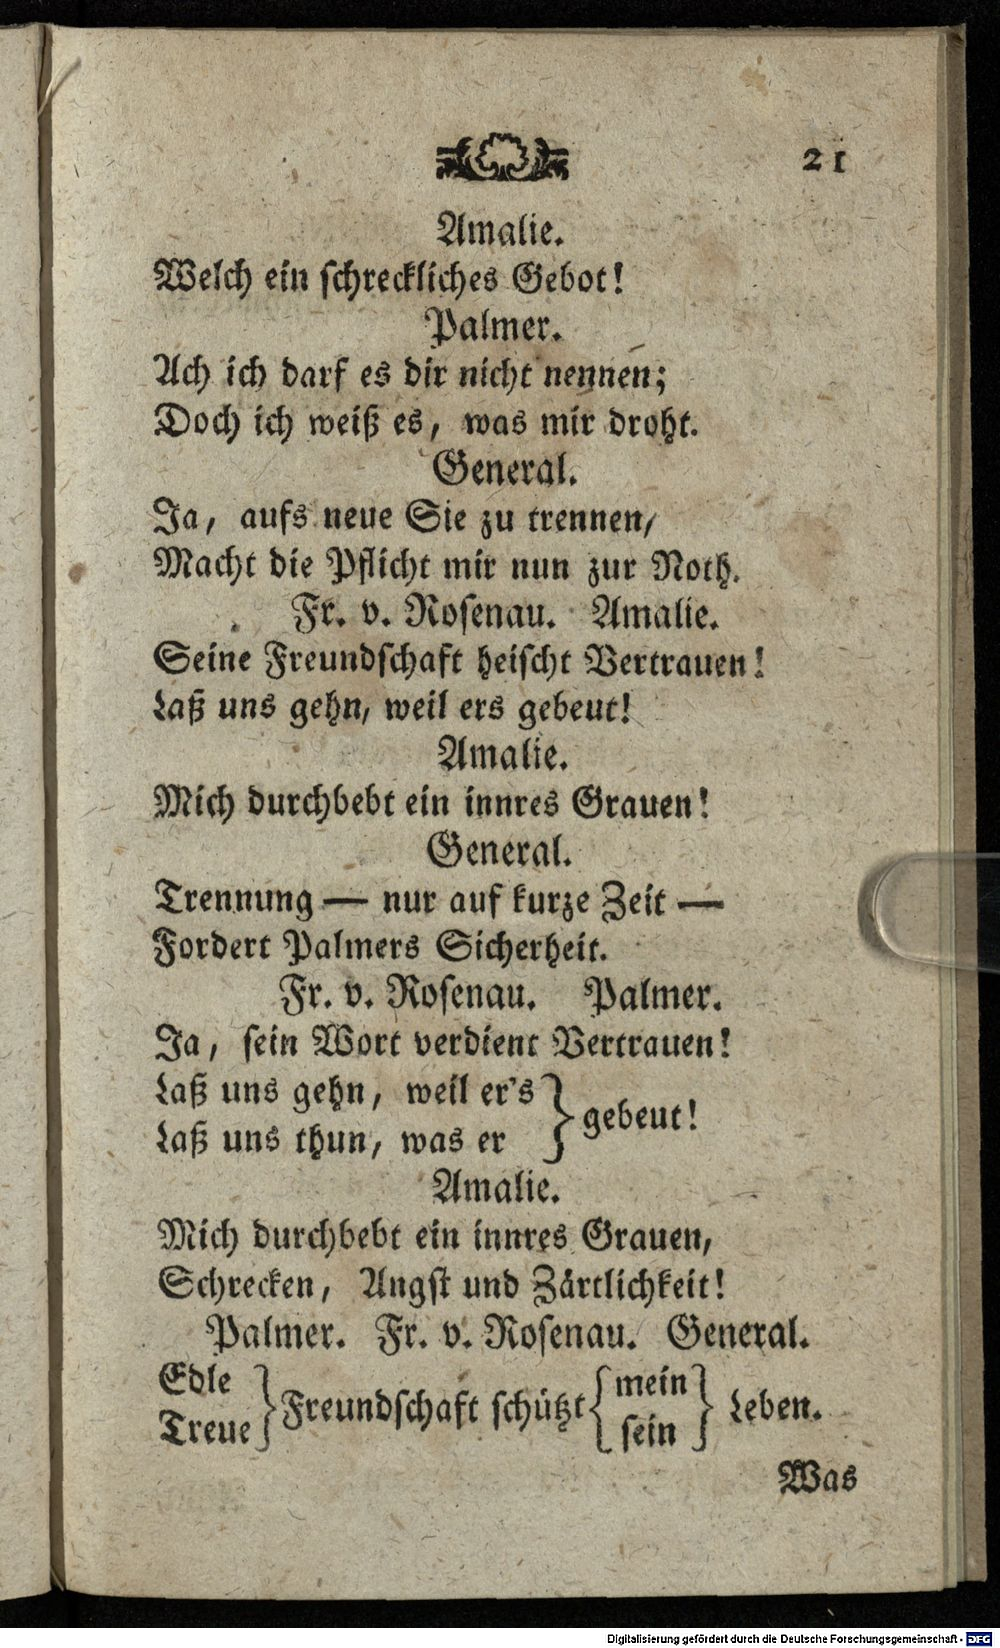 21
Amalie.
Welch ein schreckliches Gebot!
Palmer.
Ach ich darf es dir nicht nennen;
Doch ich weiß es, was mir droht.
General.
Ja, aufs neue Sie zu trennen,
Macht die Pflicht mir nun zur Noth.
Fr. v. Rosenau. Amalie.
Seine Freundschaft heischt Vertrauen!
Laß uns gehn, weil ers gebeut!
Amalie.
Mich durchbebt ein innres Grauen!
General.
Trennung — nur auf kurze Zeit —
Fordert Palmers Sicherheit.
Fr. v. Rosenau. Palmer.
Ja, sein Wort verdient Vertrauen!
Laß uns gehn, weil er's
Laß uns thun, was er } gebeut!
Amalie.
Mich durchbebt ein innres Grauen,
Schrecken, Angst und Zärtlichkeit!
Palmer. Fr. v. Rosenau. General.
Edle
Treue } Freundschaft schützt { mein
sein } Leben.
Was
Digitalisierung gefördert durch die Deutsche Forschungsgemeinschaft - DFG